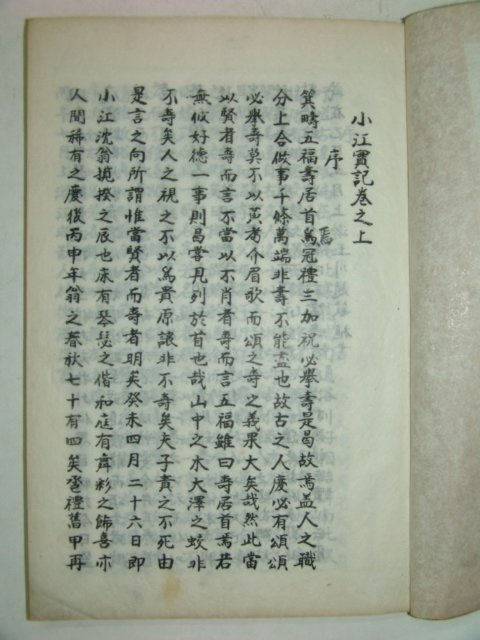 小江實記卷之上
序
箕疇五福壽居首焉冠禮三加祝必擧壽是曷故焉盖人之職
分上合做事千條萬端非壽不能盡也故古之人慶必有頌頌
必擧壽莫不以黃耇介眉歌而頌之壽之義果大矣哉然此當
以賢者壽而言不當以不肖者壽而言五福雖曰壽居首焉若
無攸好德一事則曷嘗見列於首也哉山中之木大澤之蛟非
不壽矣人之視之不以爲貴原讓非不壽矣夫子責之不死由
是言之向所謂惟當賢者而壽者明矣癸未四月二十六日即
小江沈翁弧揆之辰也床有琴瑟之偕和庭有舞彩之餙喜亦
人間稀有之慶後丙申年翁之春秋七十有四矣巹禮舊甲再